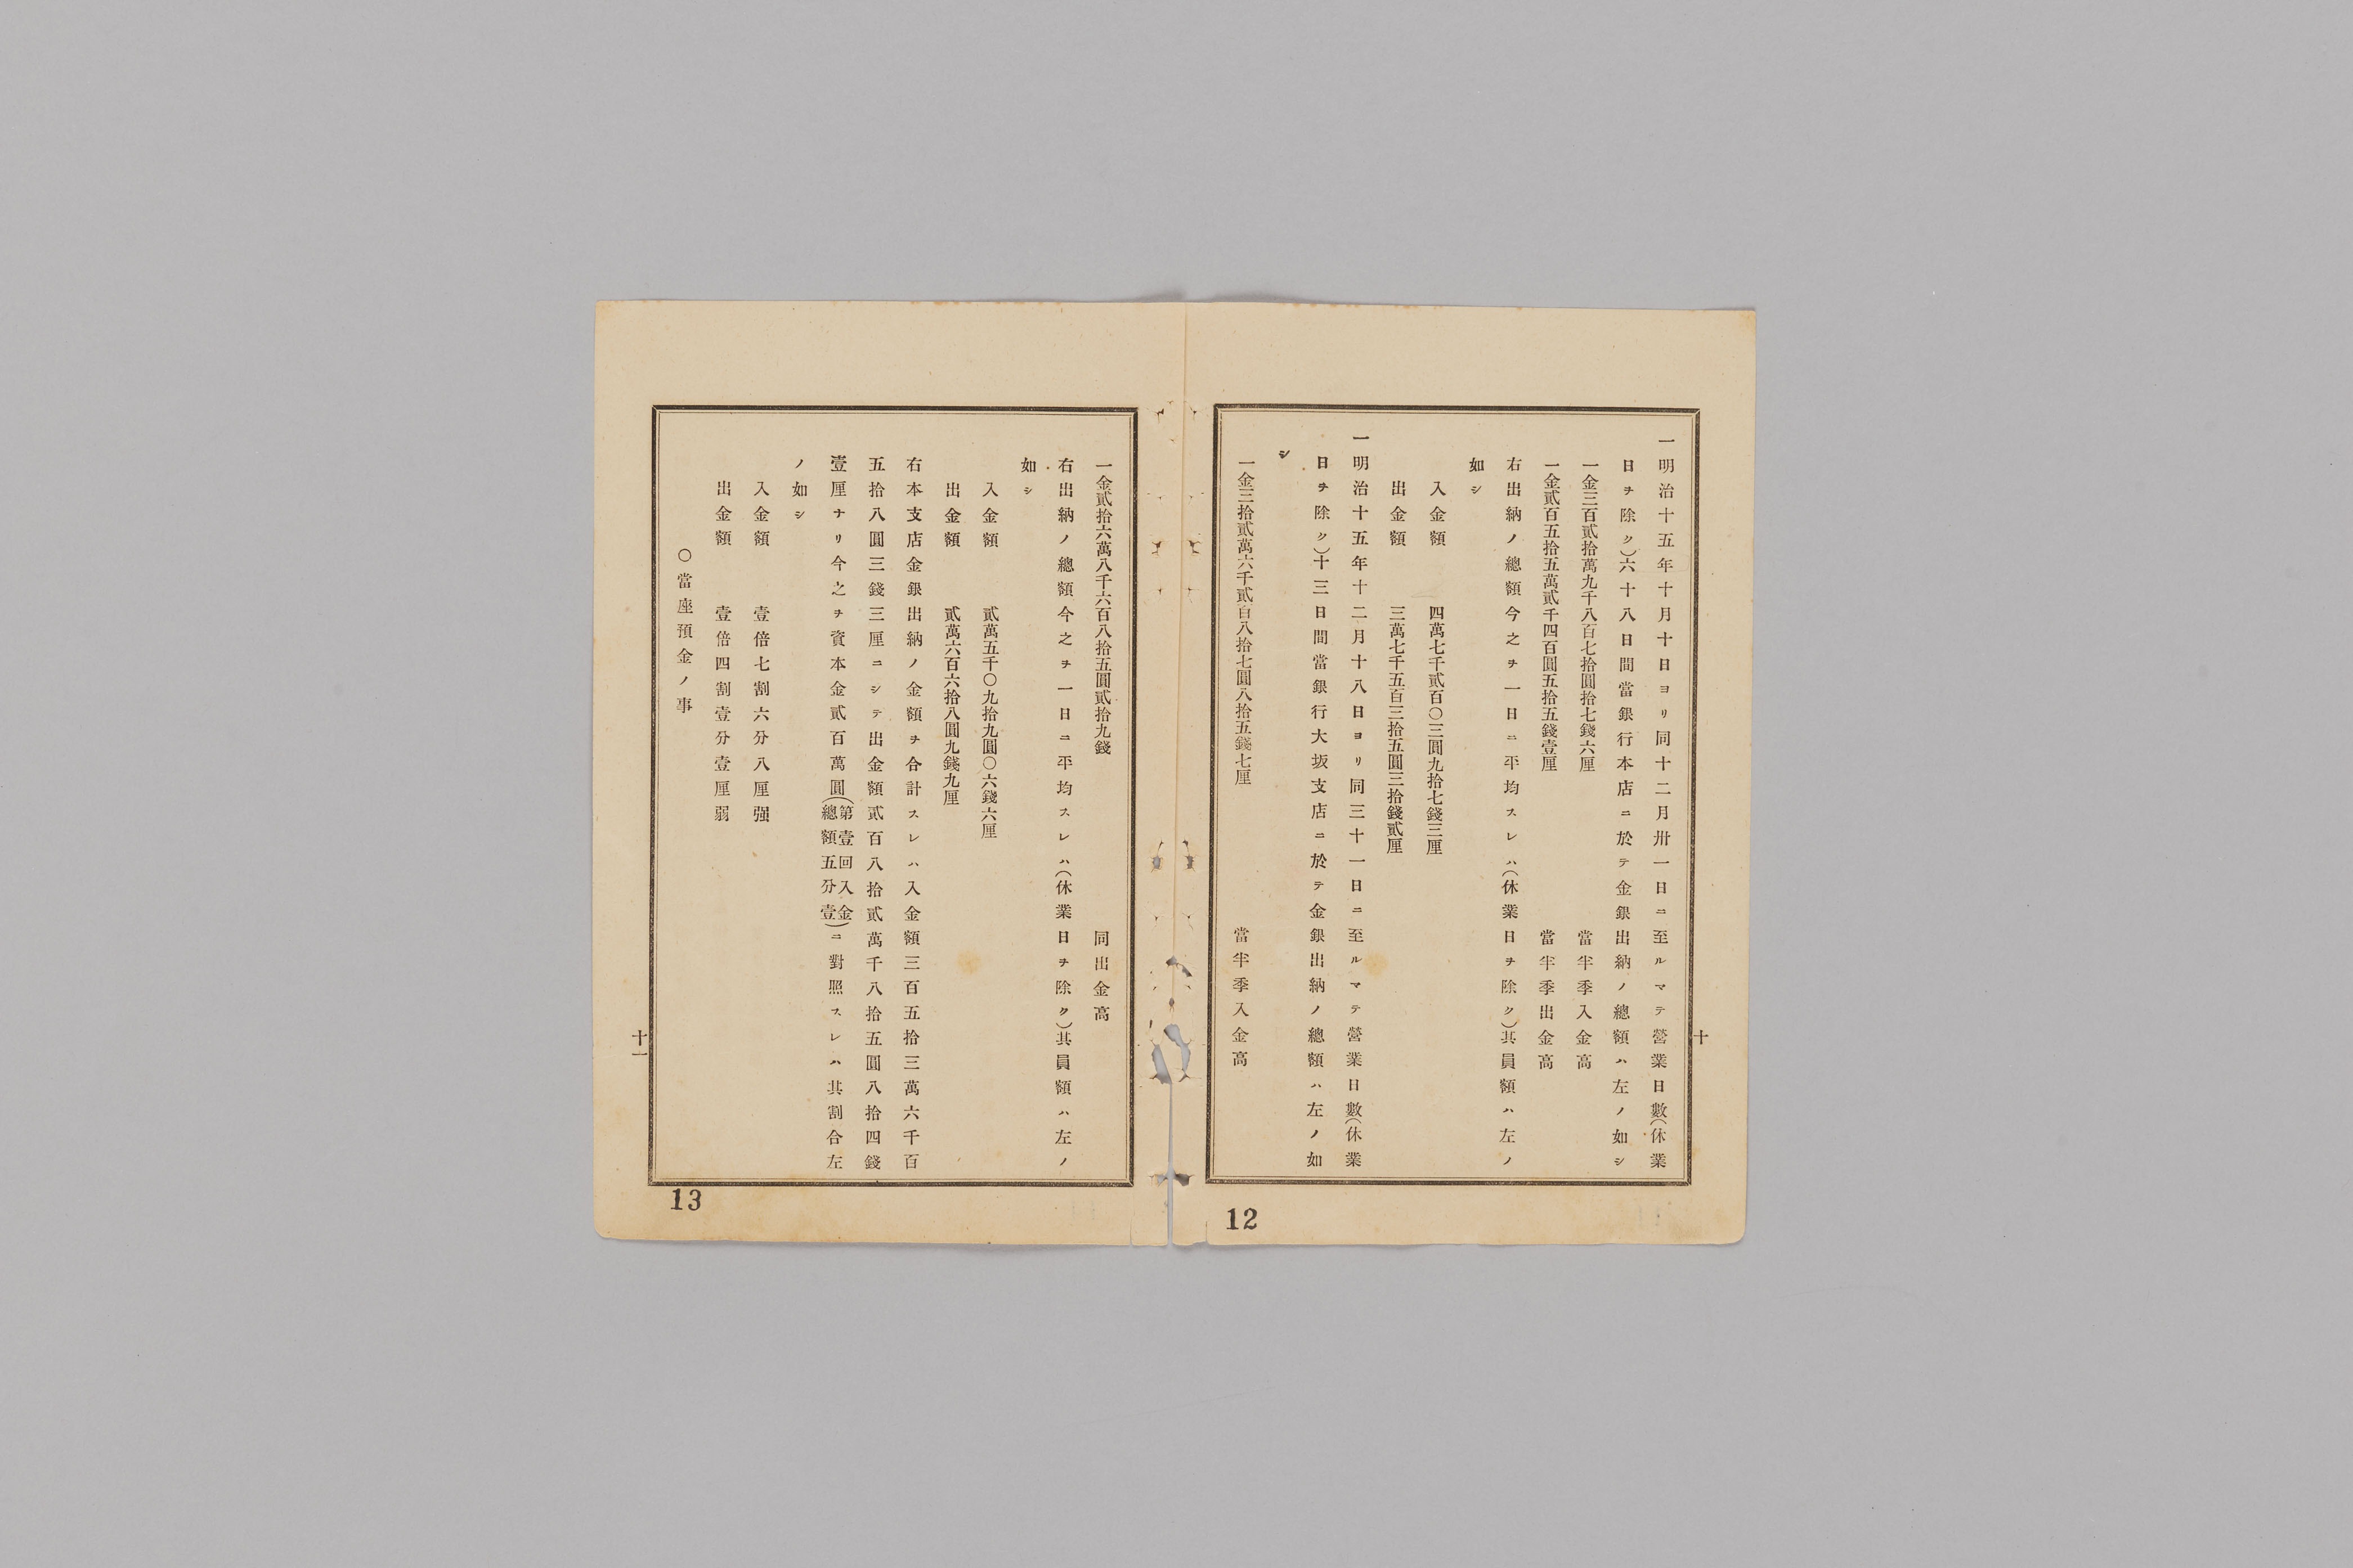 一明治十五年十月十日ヨリ同十二月卅一日ニ至ルマテ營業日數(休業
日ヲ除ク)六十八日間當銀行本店ニ於テ金銀出納ノ總額ハ左ノ如シ
一金三百貳拾萬九千八百七拾圓拾七錢六厘 當半季入金高
一金貳百五拾五萬貳千四百圓五拾五錢壹厘 當半季出金高
右出納ノ總額今之ヲ一日ニ平均スレハ(休業日ヲ除ク)其員額ハ左ノ
如シ
入金額 四萬七千貳百〇三圓九拾七錢三厘
出金額 三萬七千五百三拾五圓三拾錢貳厘
一明治十五年十二月十八日ヨリ同三十一日ニ至ルマテ營業日數(休業
日ヲ除ク)十三日間當銀行大坂支店ニ於テ金銀出納ノ總額ハ左ノ如
シ
一金三拾貳萬六千貳百八拾七圓八拾五錢七厘 當半季入金高
十
12
一金貳拾六萬八千六百八拾五圓貳拾九錢 同出金高
右出納ノ總額今之ヲ一日ニ平均スレハ(休業日ヲ除ク)其員額ハ左ノ
如シ
入金額 貳萬五千〇九拾九圓〇六錢六厘
出金額 貳萬六百六拾八圓九錢九厘
右本支店金銀出納ノ金額ヲ合計スレハ入金額三百五拾三萬六千百
五拾八圓三錢三厘ニシテ出金額貳百八拾貳萬千八拾五圓八拾四錢
壹厘ナリ今之ヲ資本金貳百萬圓(第壹回入金總額五分壹)ニ對照スレハ其割合左
ノ如シ
入金額 壹倍七割六分八厘强
出金額 壹倍四割壹分壹厘弱
〇當座預金ノ事
十一
13